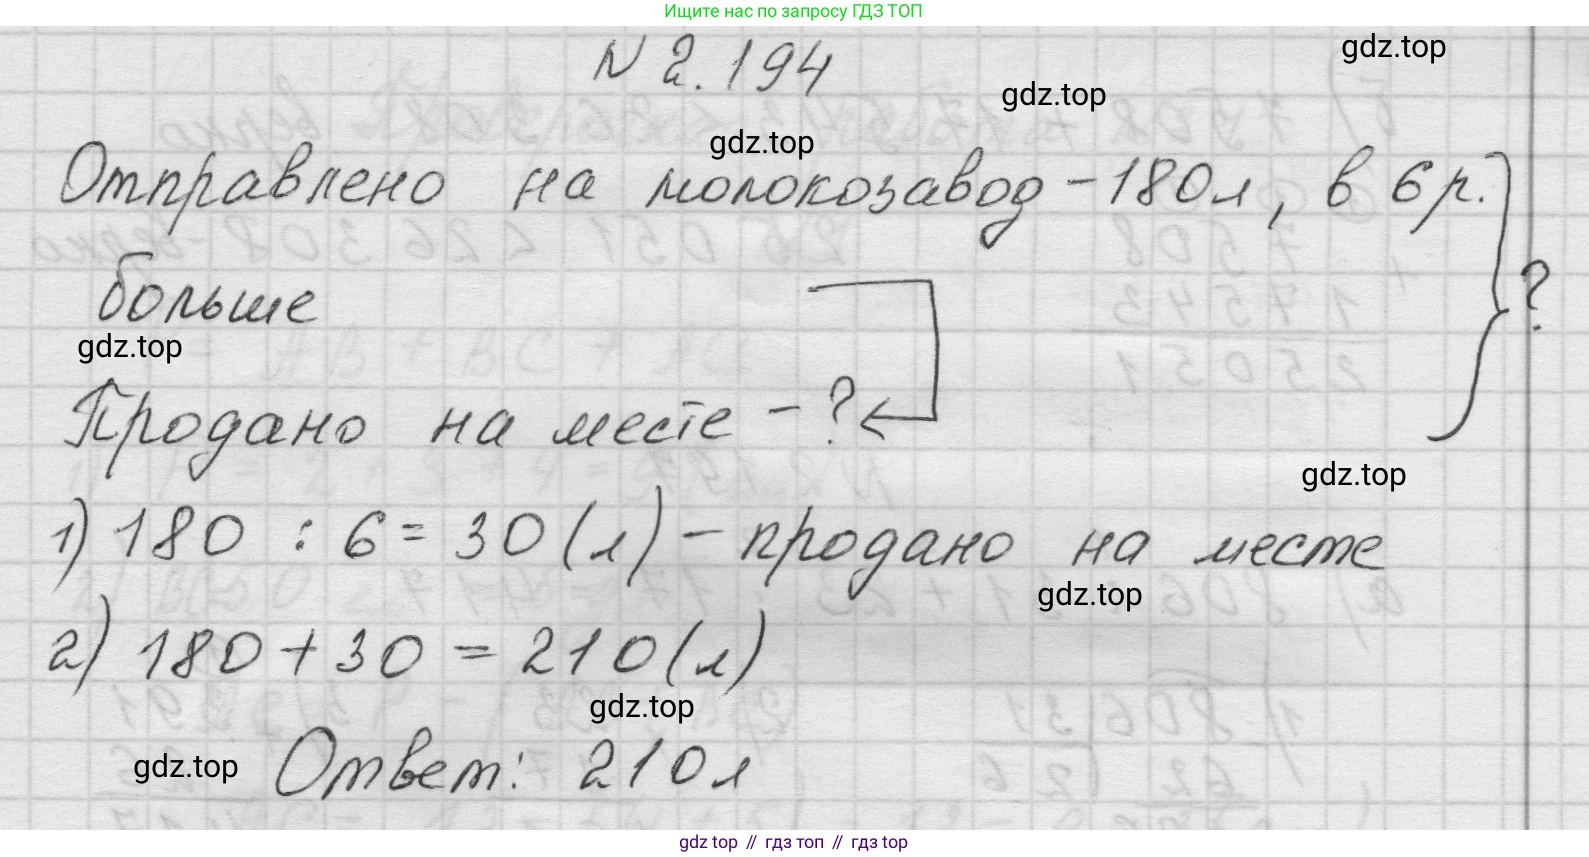 Ищите нас по запросу ГДЗ ТОП
N 2.194
gdz.top
gdz.top
gdz.top
Отправлено на молокозавод - 180 л, в 6 р.
больше
?
gdz.top
Продано на месте - ?
gdz.top
1) 180 : 6 = 30 (л) - продано на месте
gdz.top
2) 180 + 30 = 210 (л)
gdz.top
gdz.top
Ответ: 210 л
gdz.top // гдз топ // гдз top